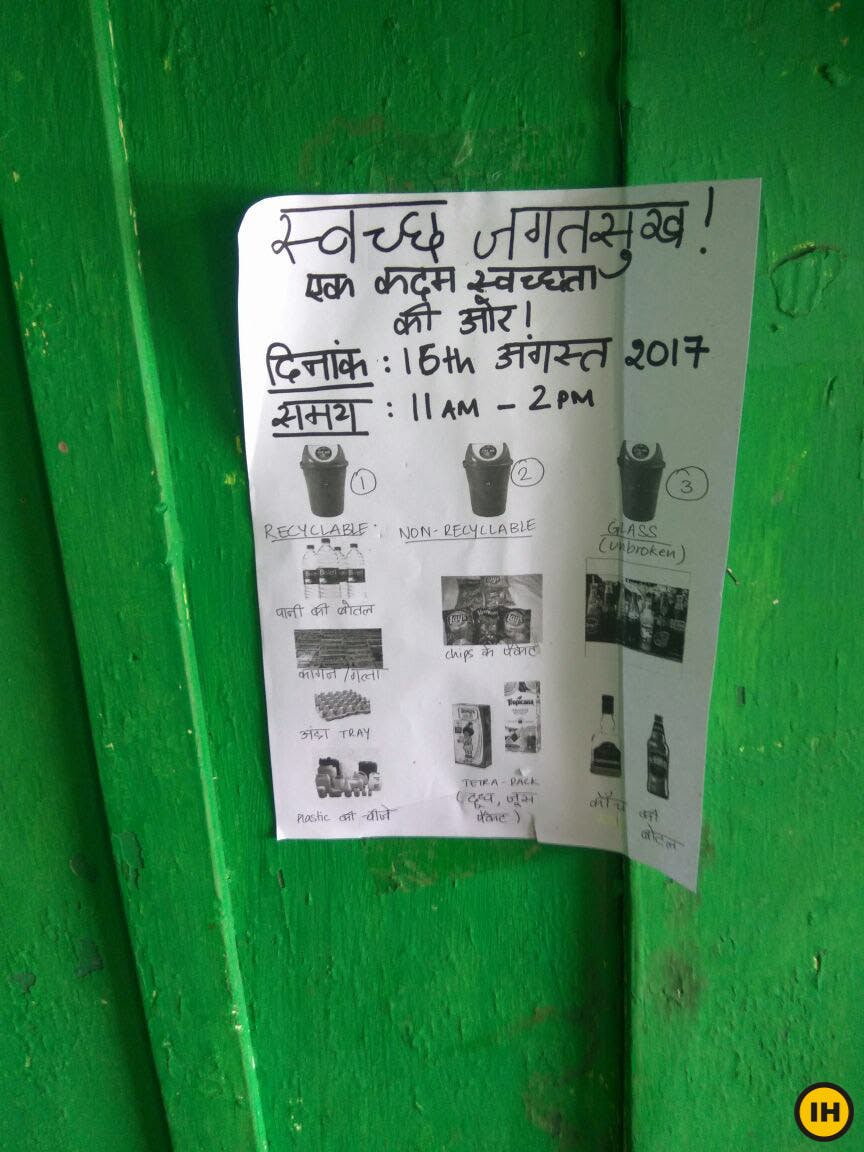 स्वच्छ जगतसुख!
एक कदम स्वच्छता
की ओर!
दिनांक : 15th अंगस्त 2017
समय : 11 AM - 2 PM
1
2
3
RECYCLABLE
NON-RECYCLABLE
GLASS
(unbroken)
पानी की बोतल
chips के पैकेट
कागज /गत्ता
अंडा TRAY
Tropicana
TETRA-PACK
(दूध, जूस
पैकेट)
Plastic की चीजें
काँच
की
बोतल
IH